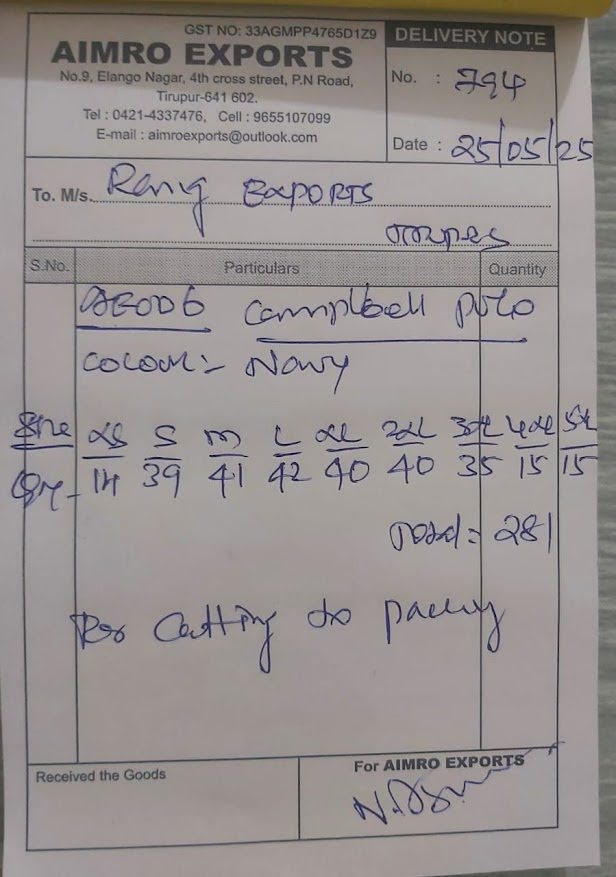 GST NO: 33AGMPP4765D1Z9
AIMRO EXPORTS
No.9, Elango Nagar, 4th cross street, P.N Road,
Tirupur-641 602.
Tel : 0421-4337476, Cell : 9655107099
E-mail : aimroexports@outlook.com
DELIVERY NOTE
No. : 794
Date : 25/05/25
To. M/s. EXPORTS
S.No. Particulars Quantity
Campbell Polo
Colour:- Navy
Size XS S M L XL 2XL 3XL 4XL 5XL
Qty- 14 39 41 42 40 40 35 15 15
Total = 281
For Cutting to packing
Received the Goods
For AIMRO EXPORTS